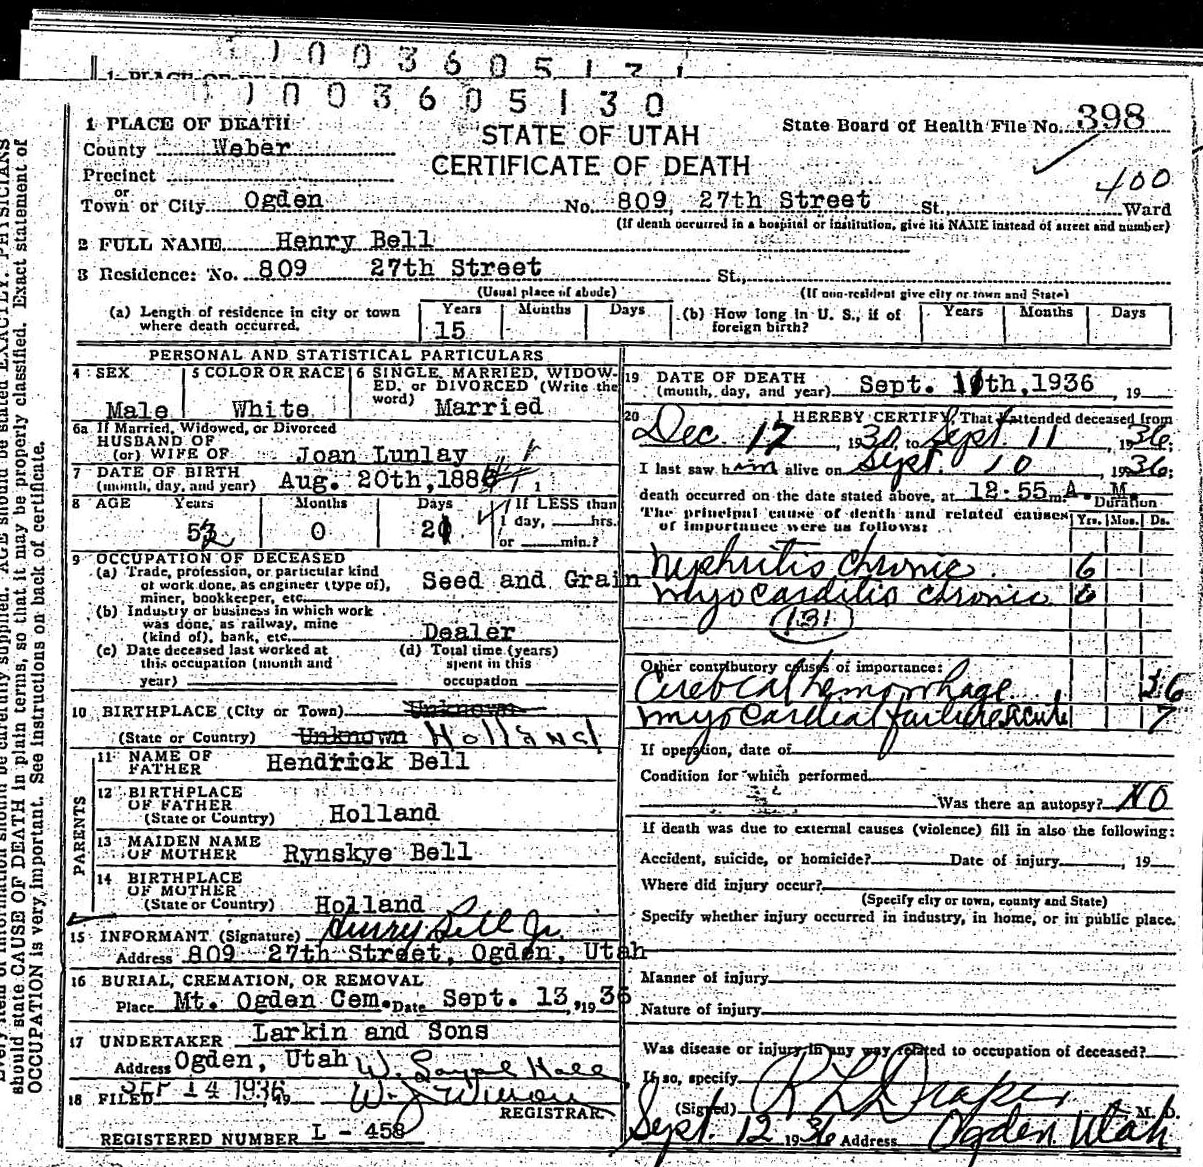 1003605130
1 PLACE OF DEATH
STATE OF UTAH
CERTIFICATE OF DEATH
State Board of Health File No. 398
County Weber
Precinct
400
or
Town or City Ogden No. 809, 27th Street St., Ward
(If death occurred in a hospital or institution, give its NAME instead of street and number)
2 FULL NAME Henry Bell
3 Residence: No. 809 27th Street St.,
(Usual place of abode) (If non-resident give city or town and State)
(a) Length of residence in city or town where death occurred. Years 15 Months Days (b) How long in U. S., if of foreign birth? Years Months Days
PERSONAL AND STATISTICAL PARTICULARS
4 SEX Male
5 COLOR OR RACE White
6 SINGLE, MARRIED, WIDOWED, or DIVORCED (Write the word) Married
6a If Married, Widowed, or Divorced
HUSBAND OF
(or) WIFE OF Joan Lunlay
7 DATE OF BIRTH
(month, day, and year) Aug. 20th, 188
8 AGE Years Months Days If LESS than
0 1 day, hrs.
or min.?
9 OCCUPATION OF DECEASED
(a) Trade, profession, or particular kind
of work done, as engineer (type of),
miner, bookkeeper, etc. Seed and Grain
(b) Industry or business in which work
was done, as railway, mine
(kind of), bank, etc. Dealer
(c) Date deceased last worked at
this occupation (month and
year)
(d) Total time (years)
spent in this
occupation
10 BIRTHPLACE (City or Town) Unknown
(State or Country) Unknown Holland
PARENTS
11 NAME OF
FATHER Hendrick Bell
12 BIRTHPLACE
OF FATHER
(State or Country) Holland
13 MAIDEN NAME
OF MOTHER Rynskye Bell
14 BIRTHPLACE
OF MOTHER
(State or Country) Holland
15 INFORMANT (Signature) Henry Bell Jr.
Address 809 27th Street, Ogden, Utah
16 BURIAL, CREMATION, OR REMOVAL
Place Mt. Ogden Cem. Date Sept. 13, 1936
17 UNDERTAKER Larkin and Sons
Address Ogden, Utah
18 FILED SEP 14 1936, 19
REGISTRAR
REGISTERED NUMBER L - 458
19 DATE OF DEATH
(month, day, and year) Sept. 11th, 1936, 19
20 I HEREBY CERTIFY, That I attended deceased from
Dec 17, 1930, to Sept 11, 1936;
I last saw him alive on Sept. 10, 1936;
death occurred on the date stated above, at 12:55 m. A. M.
Duration
The principal cause of death and related causes
of importance were as follows: Yrs. Mos. Ds.
Nephritis chronic 6
Myocarditis chronic 6
131
Other contributory causes of importance:
Cerebral hemorrhage 36
myocardial failure acute 7
If operation, date of
Condition for which performed
Was there an autopsy? NO
If death was due to external causes (violence) fill in also the following:
Accident, suicide, or homicide? Date of injury, 19
Where did injury occur?
(Specify city or town, county and State)
Specify whether injury occurred in industry, in home, or in public place.
Manner of injury
Nature of injury
Was disease or injury in any way related to occupation of deceased?
If so, specify
(Signed) R L Draper, M. D.
Sept. 12 1936 Address Ogden Utah
should state CAUSE OF DEATH in plain terms, so that it may be properly classified. Exact statement of
OCCUPATION is very important. See instructions on back of certificate.